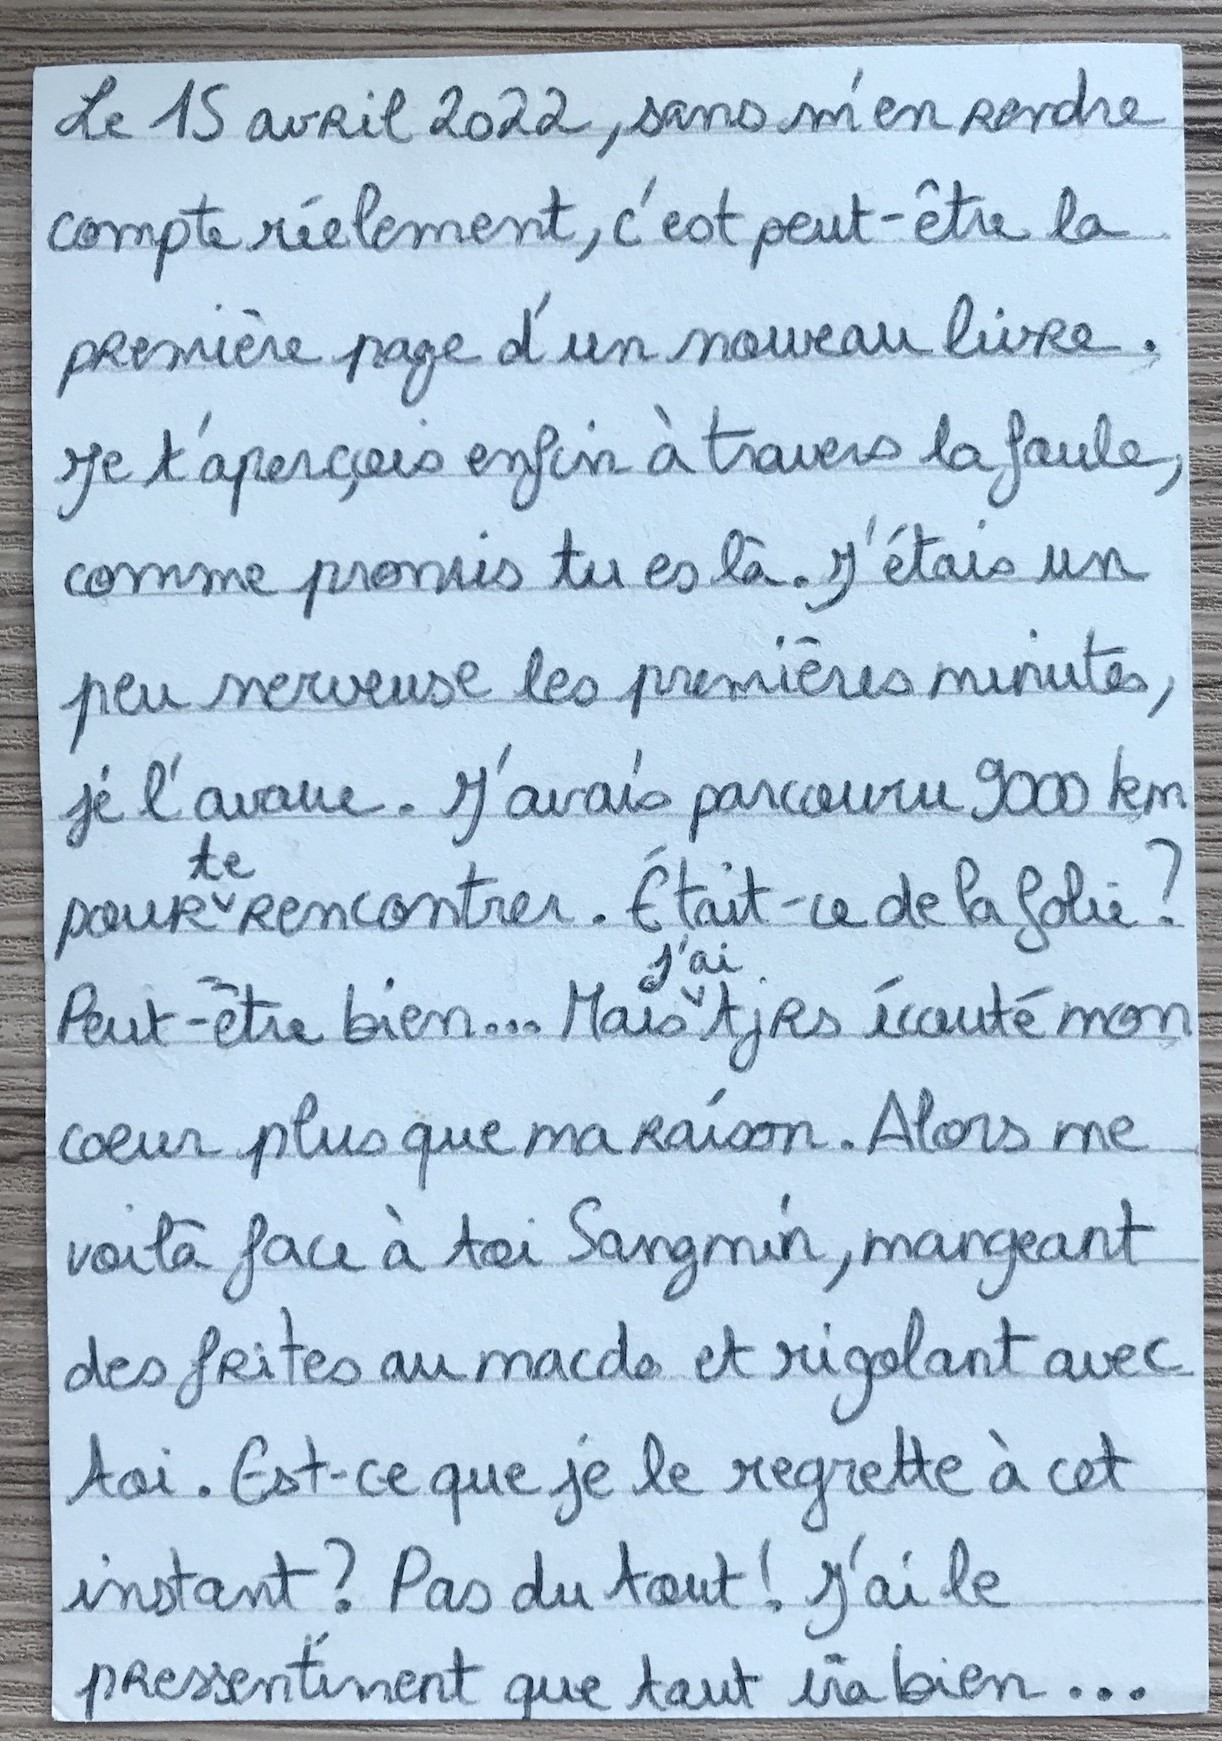 Le 15 avril 2022, sans m'en rendre
compte réelement, c'est peut-être la
première page d'un nouveau livre.
Je t'aperçois enfin à travers la foule,
comme promis tu es là. J'étais un
peu nerveuse les premières minutes,
je l'avoue. J'avais parcouru 9000 km
pour te rencontrer. Était-ce de la folie ?
Peut-être bien... Mais j'ai tjrs écouté mon
coeur plus que ma raison. Alors me
voilà face à toi Sangmin, mangeant
des frites au macdo et rigolant avec
toi. Est-ce que je le regrette à cet
instant ? Pas du tout ! J'ai le
pressentiment que tout ira bien...